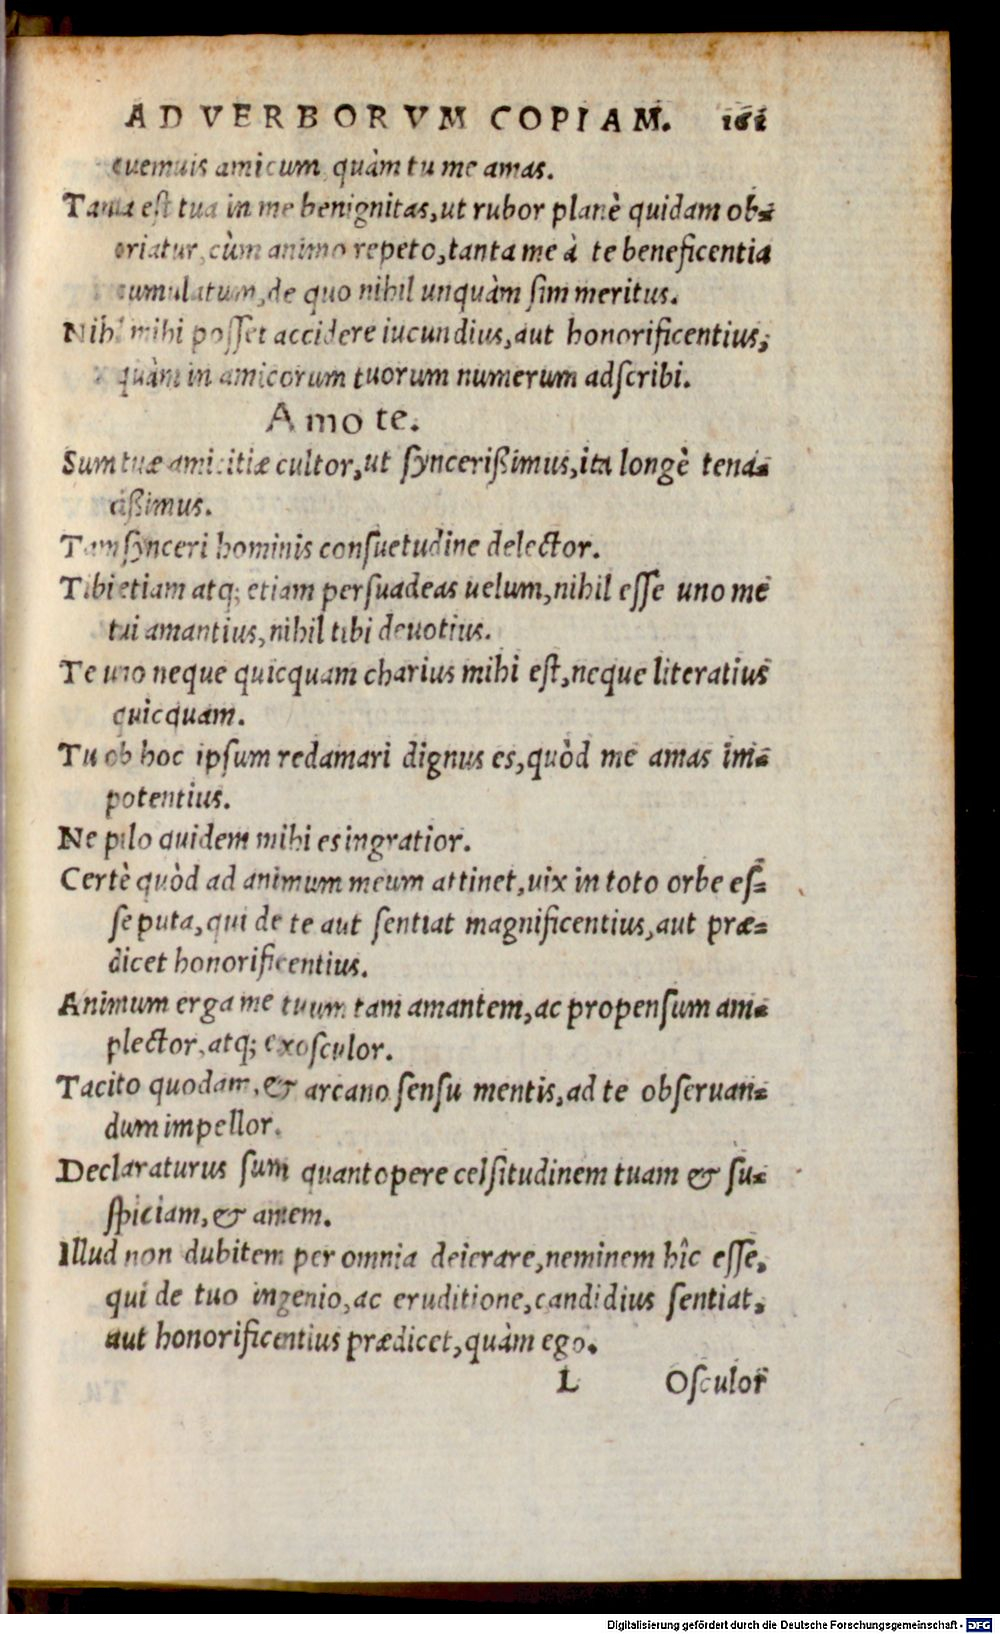 AD VERBORVM COPIAM. 161
quemuis amicum, quàm tu me amas.
Tanta eſt tua in me benignitas, ut rubor planè quidam ob=
oriatur, cùm animo repeto, tanta me à te beneficentia
cumulatum, de quo nihil unquàm ſim meritus.
Nihil mihi poſſet accidere iucundius, aut honorificentius,
quàm in amicorum tuorum numerum adſcribi.
Amo te.
Sum tuæ amicitiæ cultor, ut ſynceriſsimus, ita longè tena=
ciſsimus.
Tam ſynceri hominis conſuetudine delector.
Tibi etiam atq; etiam perſuadeas uelum, nihil eſſe uno me
tui amantius, nihil tibi deuotius.
Te uno neque quicquam charius mihi eſt, neque literatius
quicquam.
Tu ob hoc ipſum redamari dignus es, quòd me amas im=
potentius.
Ne pilo quidem mihi es ingratior.
Certè quòd ad animum meum attinet, uix in toto orbe eſ=
ſe puta, qui de te aut ſentiat magnificentius, aut præ=
dicet honorificentius.
Animum erga me tuum tam amantem, ac propenſum am=
plector, atq; exoſculor.
Tacito quodam, & arcano ſenſu mentis, ad te obſeruan=
dum impellor.
Declaraturus ſum quantopere celſitudinem tuam & ſu=
ſpiciam, & amem.
Illud non dubitem per omnia deierare, neminem hîc eſſe,
qui de tuo ingenio, ac eruditione, candidius ſentiat,
aut honorificentius prædicet, quàm ego.
L Oſculor
Digitalisierung gefördert durch die Deutsche Forschungsgemeinschaft - DFG